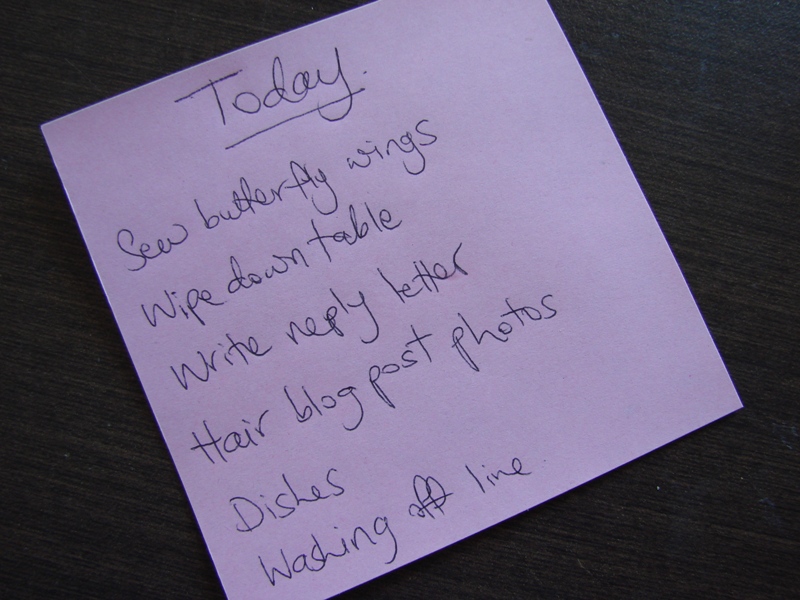 Today.
Sew butterfly wings
Wipe down table
Write reply letter
Hair blog post photos
Dishes
Washing off line